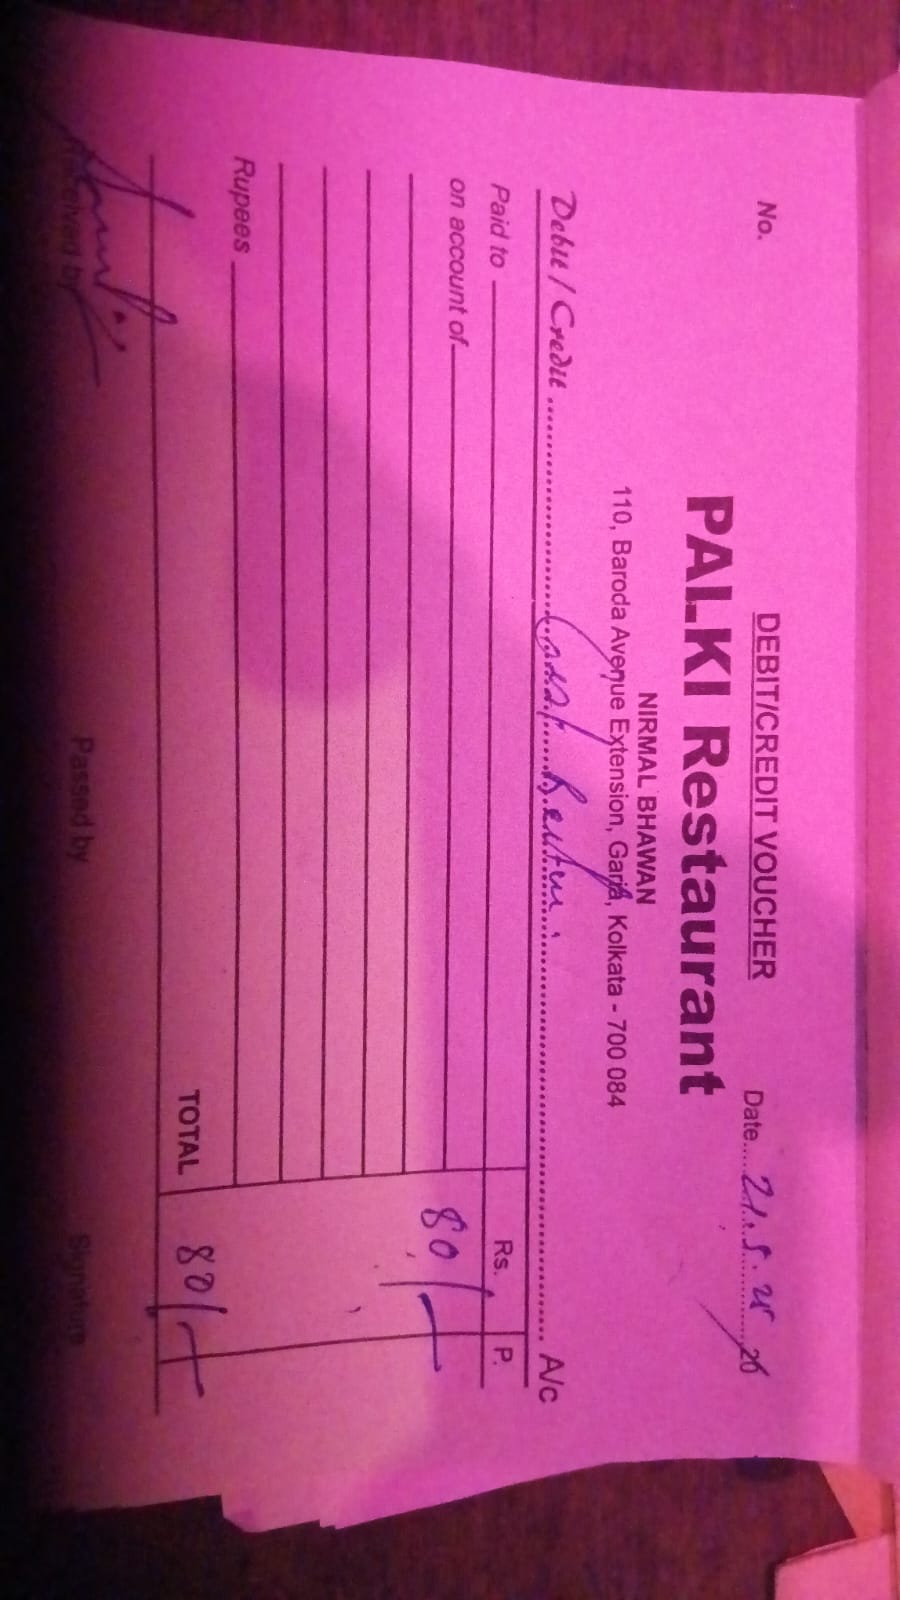 DEBIT/CREDIT VOUCHER
No. Date 21.5.
PALKI Restaurant
NIRMAL BHAWAN
110, Baroda Avenue Extension, Garia, Kolkata - 700 084
Debit / Credit A/c
Paid to Rs. P.
on account of 80/-
Rupees
TOTAL 80/-
Received by Passed by Signature